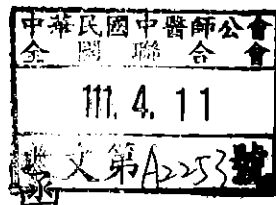 中華民國中醫師公會
全國聯合會
111. 4. 11
收文第A2253號